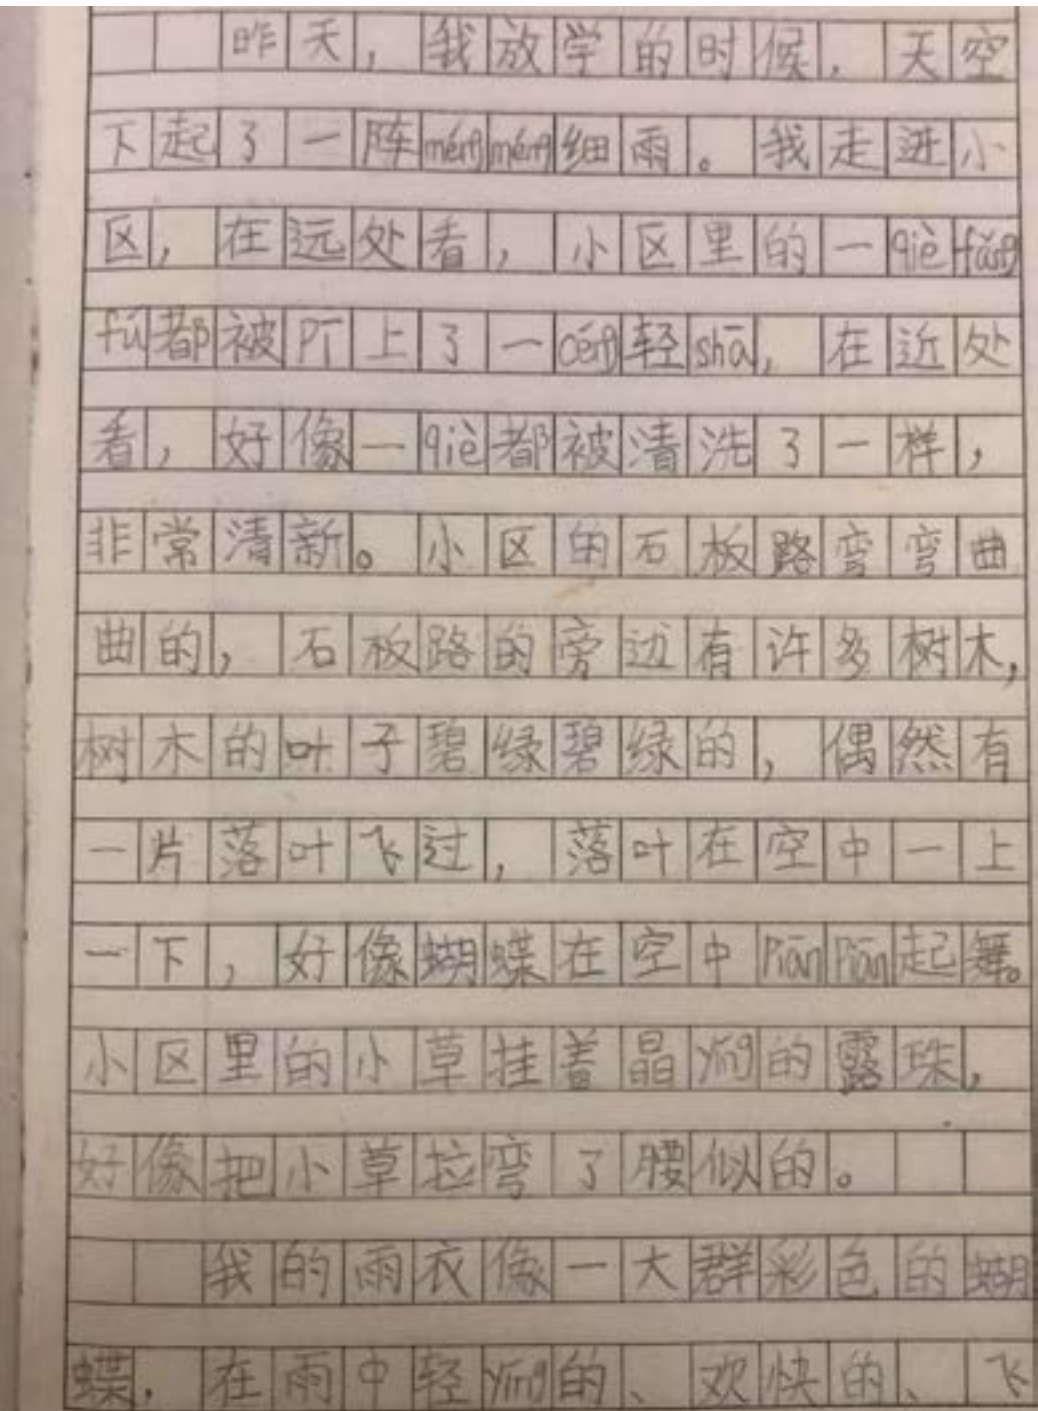 昨天，我放学的时候，天空
下起了一阵méngméng细雨。我走进小
区，在远处看，小区里的一qièfǎng
fú都被pī上了一céng轻shā，在近处
看，好像一qiè都被清洗了一样，
非常清新。小区的石板路弯弯曲
曲的，石板路的旁边有许多树木，
树木的叶子碧绿碧绿的，偶然有
一片落叶飞过，落叶在空中一上
一下，好像蝴蝶在空中piānpiān起舞。
小区里的小草挂着晶yíng的露珠，
好像把小草拉弯了腰似的。
我的雨衣像一大群彩色的蝴
蝶，在雨中轻yíng的、欢快的、飞